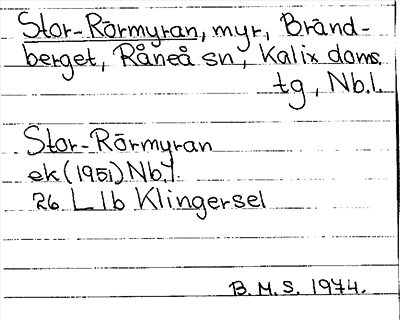 Stor-Rörmyran, myr, Bränd-
berget, Råneå sn, Kalix doms.
tg, Nb.l.
Stor-Rörmyran
ek (1951) Nb.l.
26 L 1b Klingersel
B.M.S. 1974.